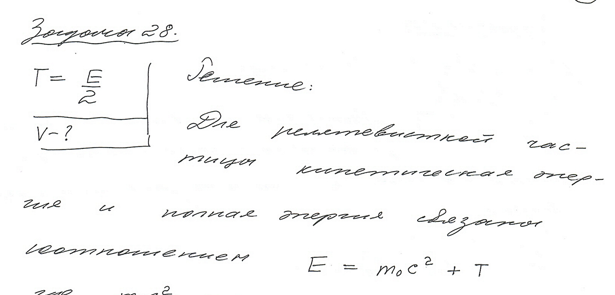 Задача 28.
T = E/2
Решение:
V-?
Для релятивисткой час-
тицы кинетическая энер-
гия и полная энергия связаны
соотношением E = m₀c² + T
где m c²